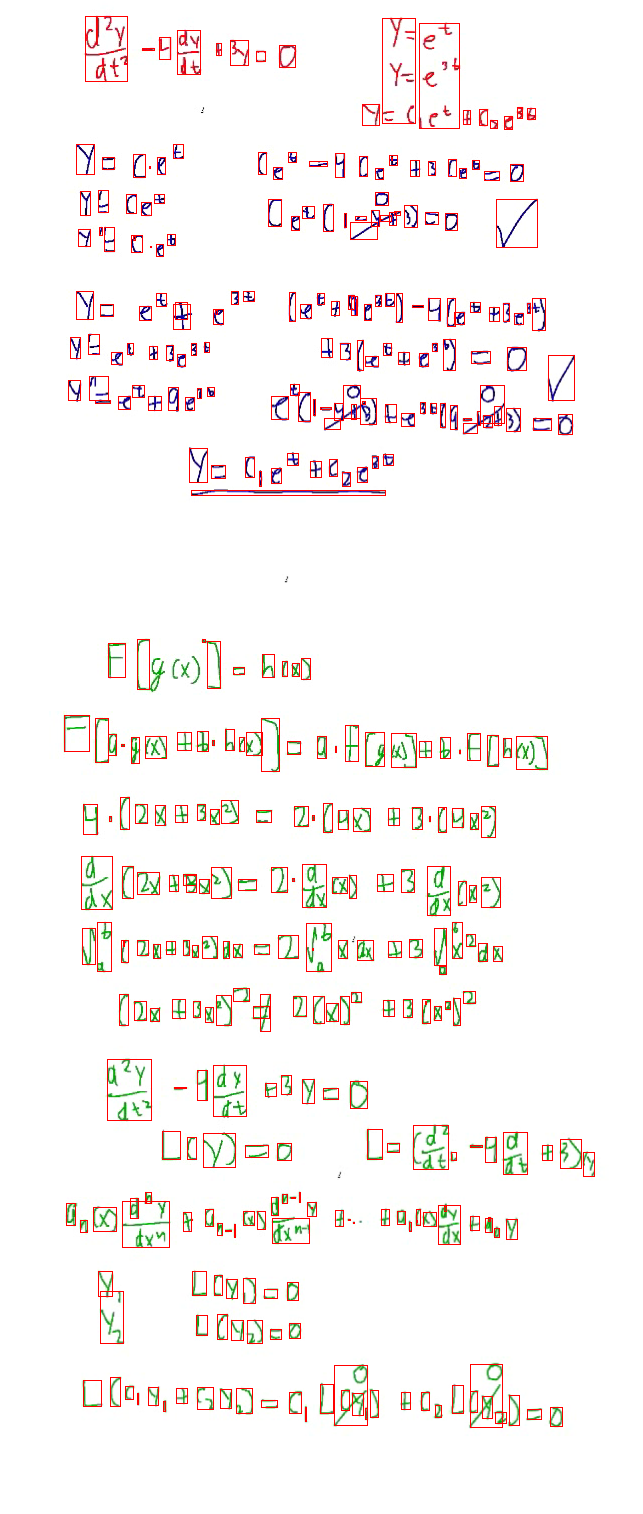 d²y/dt² - 4 dy/dt + 3y = 0
y = e^t
y = e^3t
y = c₁e^t + c₂e^3t
y = c·e^t    ce^t - 4ce^t + 3ce^t = 0
y' = ce^t    ce^t(1-4+3) = 0 ✓
y'' = c·e^t
y = e^t + e^3t    (e^t + 9e^3t) - 4(e^t + 3e^3t)
y' = e^t + 3e^3t    + 3(e^t + e^3t) = 0 ✓
y'' = e^t + 9e^3t    e^t(1-4+3) + e^3t(9-12+3) = 0
y = c₁e^t + c₂e^3t
F[g(x)] = h(x)
F[a·g(x) + b·h(x)] = a·F[g(x)] + b·F[h(x)]
4·(2x + 3x²) = 2·(4x) + 3·(4x²)
d/dx (2x + 3x²) = 2·d/dx(x) + 3 d/dx(x²)
∫_a^b (2x + 3x²)dx = 2∫_a^b x dx + 3∫_a^b x² dx
(2x + 3x²)² ≠ 2(x)² + 3(x²)²
d²y/dt² - 4 dx/dt + 3y = 0
L(y) = 0    L = (d²/dt² - 4 d/dt + 3)y
a_n(x) d^n y/dx^n + a_n-1(x) d^n-1 y/dx^n-1 + ... + a₁(x) dy/dx + a₀y
y₁    L(y₁) = 0
y₂    L(y₂) = 0
L(c₁y₁ + c₂y₂) = c₁L(y₁) + c₂L(y₂) = 0